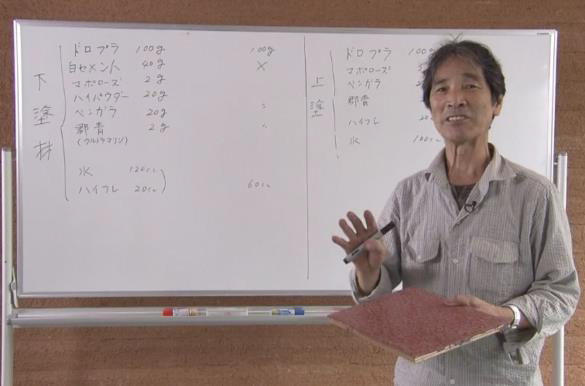 下塗材
ドロプラ 100g 100g
白セメント 40g ×
マポローズ 2g
ハイパウダー 20g
ベンガラ 20g
郡青 2g
(ウルトラマリン)
水 120cc
ハイフレ 20cc 60cc
上塗
ドロプラ 100g
マポローズ
ベンガラ
郡青
ハイフレ
水 100cc